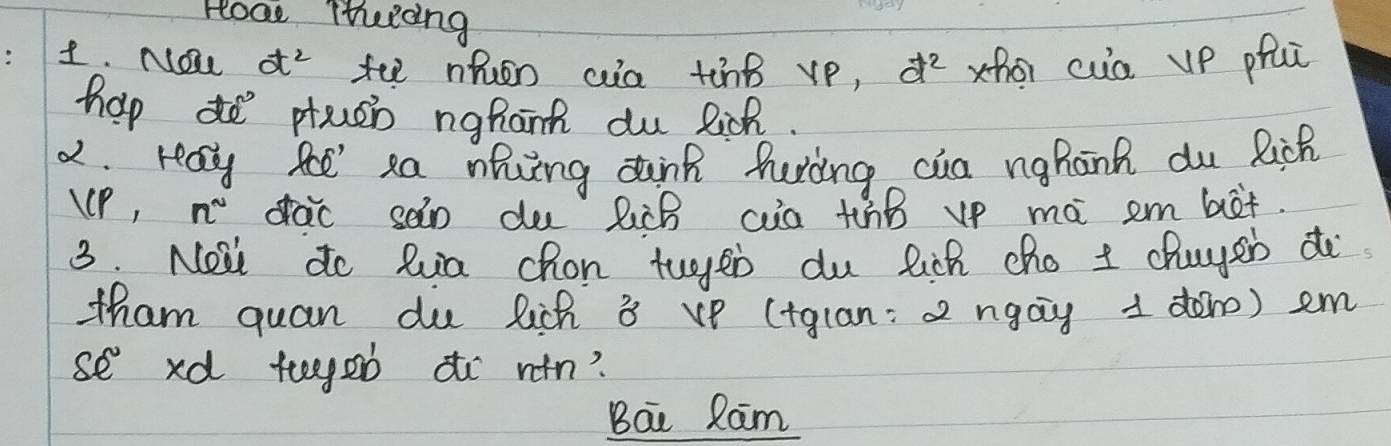 Hoài Thương
1. Nêu đ² tự nhiên của tỉnh VP, đ² xhội của VP phù
hợp để ptriển nghành du lịch.
2. Hãy kể ra những định hướng của nghành du lịch
VP, n~ đặc sản du lịch của tỉnh VP mà em biết.
3. Nếu đc lựa chọn tuyến du lịch cho 1 chuyến đi
tham quan du lịch ở VP (tgian: 2 ngày 1 đêm) em
sẽ xd tuyến đi ntn?
Bài làm